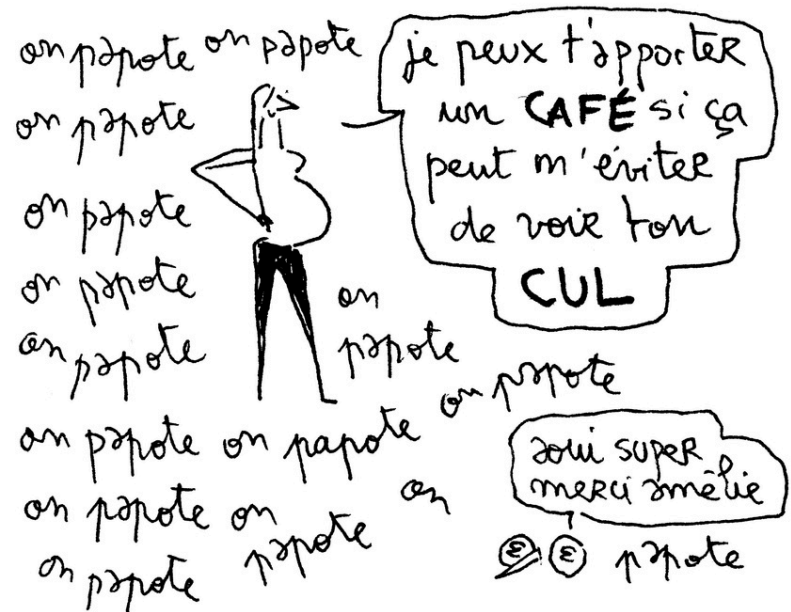 on papote on papote
on papote
on papote
on papote
on papote
je peux t'apporter
un CAFÉ si ça
peut m'éviter
de voir ton
CUL
on
papote
on papote
on papote on papote
on papote on
papote
on
on papote
aoui super
merci amélie
papote